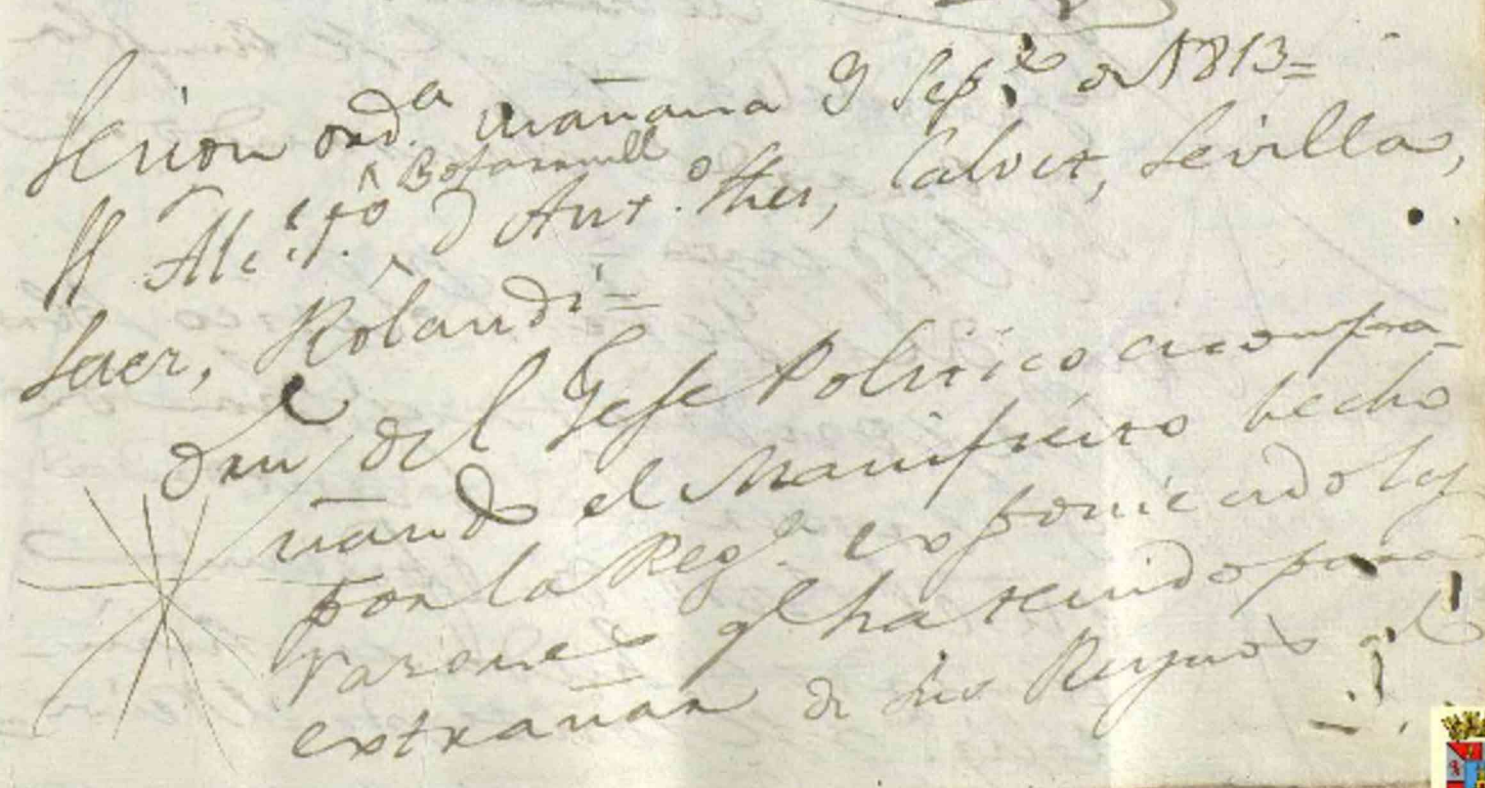 Sesion ord.ª mañana 9 Sep.e de 1813=
Botarrull
SS. Alc.e 1.º D Ant.º Ther, Calvet, Sevilla,
Soler, Rolandi=
Orn del Gefe Politico acompa-
ñando el Manifiesto hecho
por la Reg.ª exponiendo las
razones q.e ha tenido para
extrañar de sus Reynos al